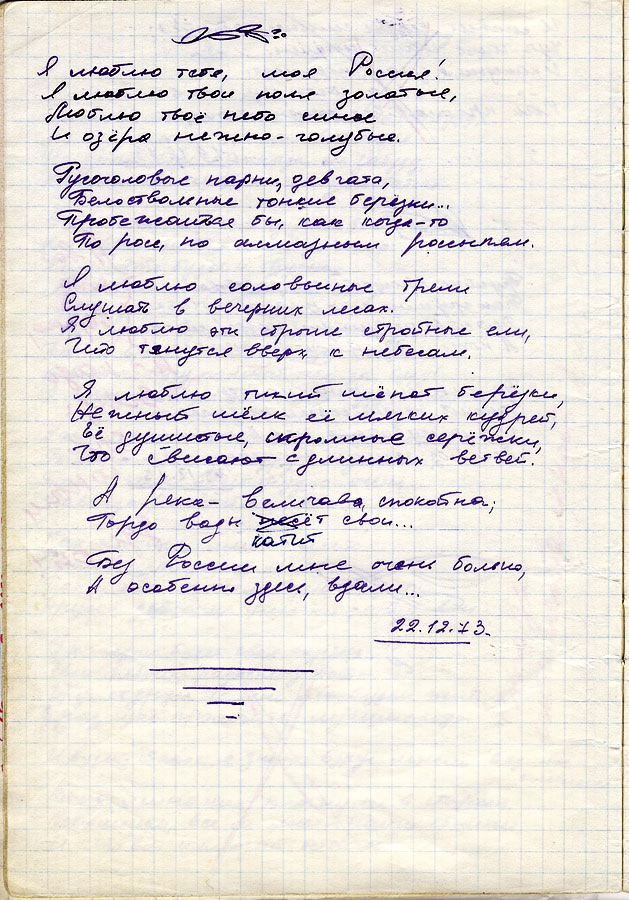 Я люблю тебя, моя Россия!
Я люблю твои поля золотые,
Люблю твоё небо синее
И озёра нежно-голубые.
Русоголовые парни, девчата,
Белоствольные тонкие берёзки...
Пробежаться бы, как когда-то
По росе, по алмазным россыпям.
Я люблю соловьиные трели
Слушать в вечерних лесах.
Я люблю эти стройные ели,
Что тянутся вверх к небесам.
Я люблю тихий шёпот берёзки,
Нежный шёлк её мягких кудрей,
Её душистые, скромные серёжки,
Что свисают с длинных ветвей.
А река - величава, спокойна;
Гордо воды несёт свои...
катит
Без России мне очень больно,
А особенно здесь, вдали...
22.12.73.